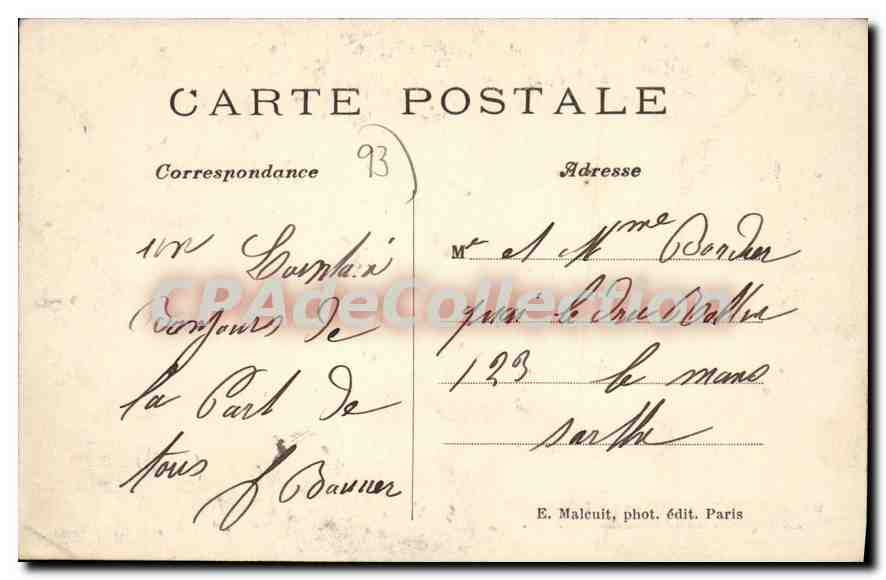 CARTE POSTALE
Correspondance
93
Adresse
un Lointain
Bonjours de
la Part de
tous
Bauner
Mr et Mme Bordier
quai le dru Rollin
123 le mans
sarthe
CPAdeCollection
E. Malcuit, phot. édit. Paris